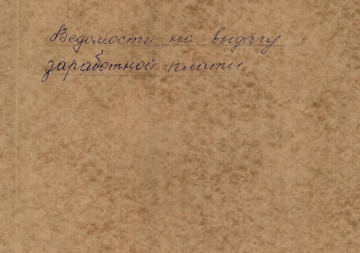 Ведомости на выдачу
заработной платы